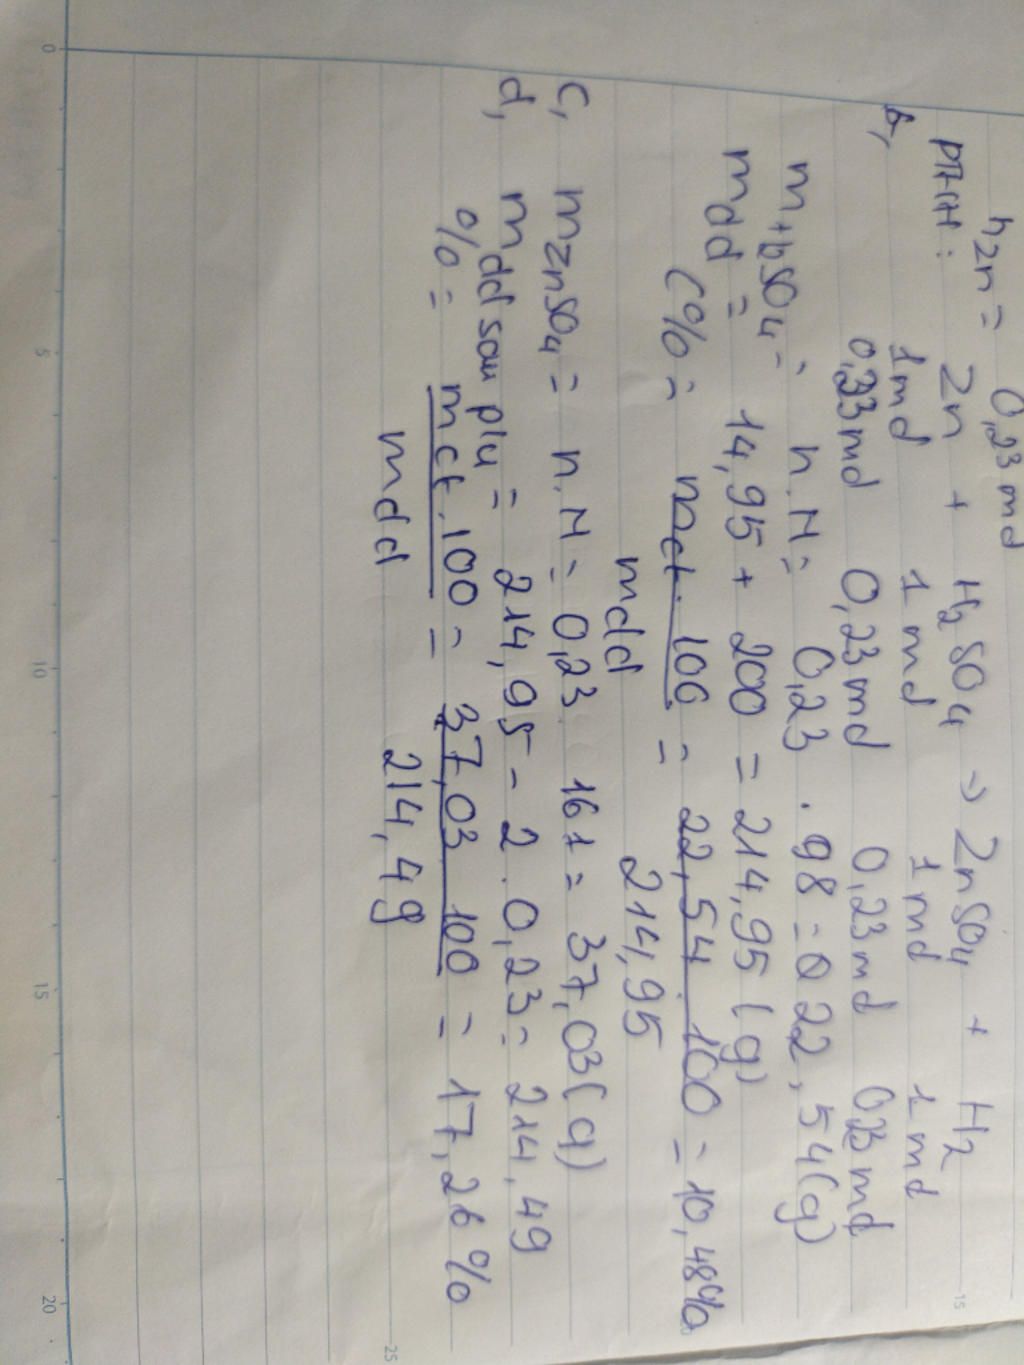 n Zn = 0,23 mol
PTHH: Zn + H2SO4 → ZnSO4 + H2
1 mol 1 mol 1 mol 1 mol
b, 0,23 mol 0,23 mol 0,23 mol 0,23 mol
m H2SO4 = n.M = 0,23 . 98 = 22,54(g)
mdd = 14,95 + 200 = 214,95 (g)
C% = mct.100 = 22,54.100 = 10,48%
mdd 214,95
c, m ZnSO4 = n.M = 0,23 161 = 37,03(g)
d, mdd sau pứ = 214,95 - 2.0,23 = 214,49
% = mct.100 = 37,03 100 = 17,26%
mdd 214,49
0 5 10 15 20
15
25